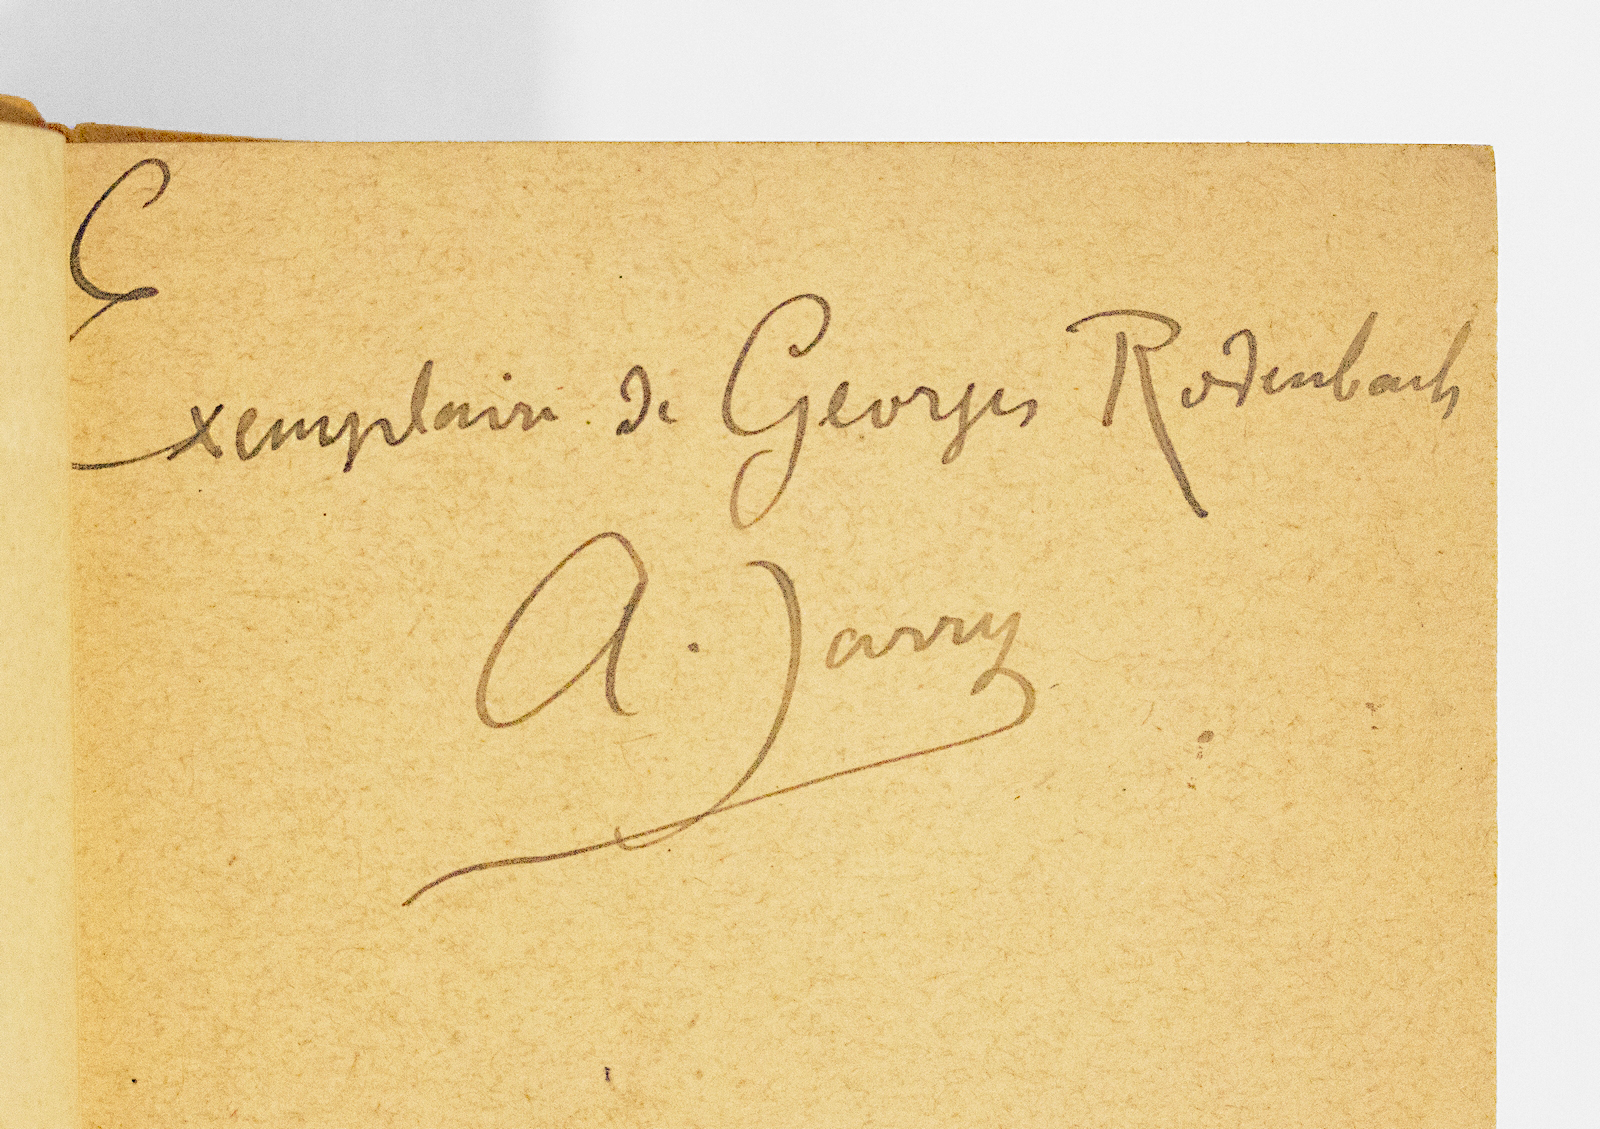 Exemplaire de Georges Rodenbach
A. Jarry